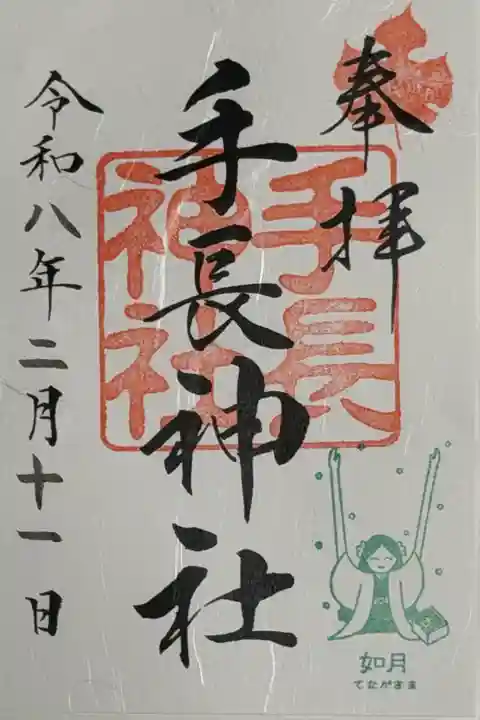 奉拝
手長神社
手長
神社
令和八年二月十一日
如月
てながさま